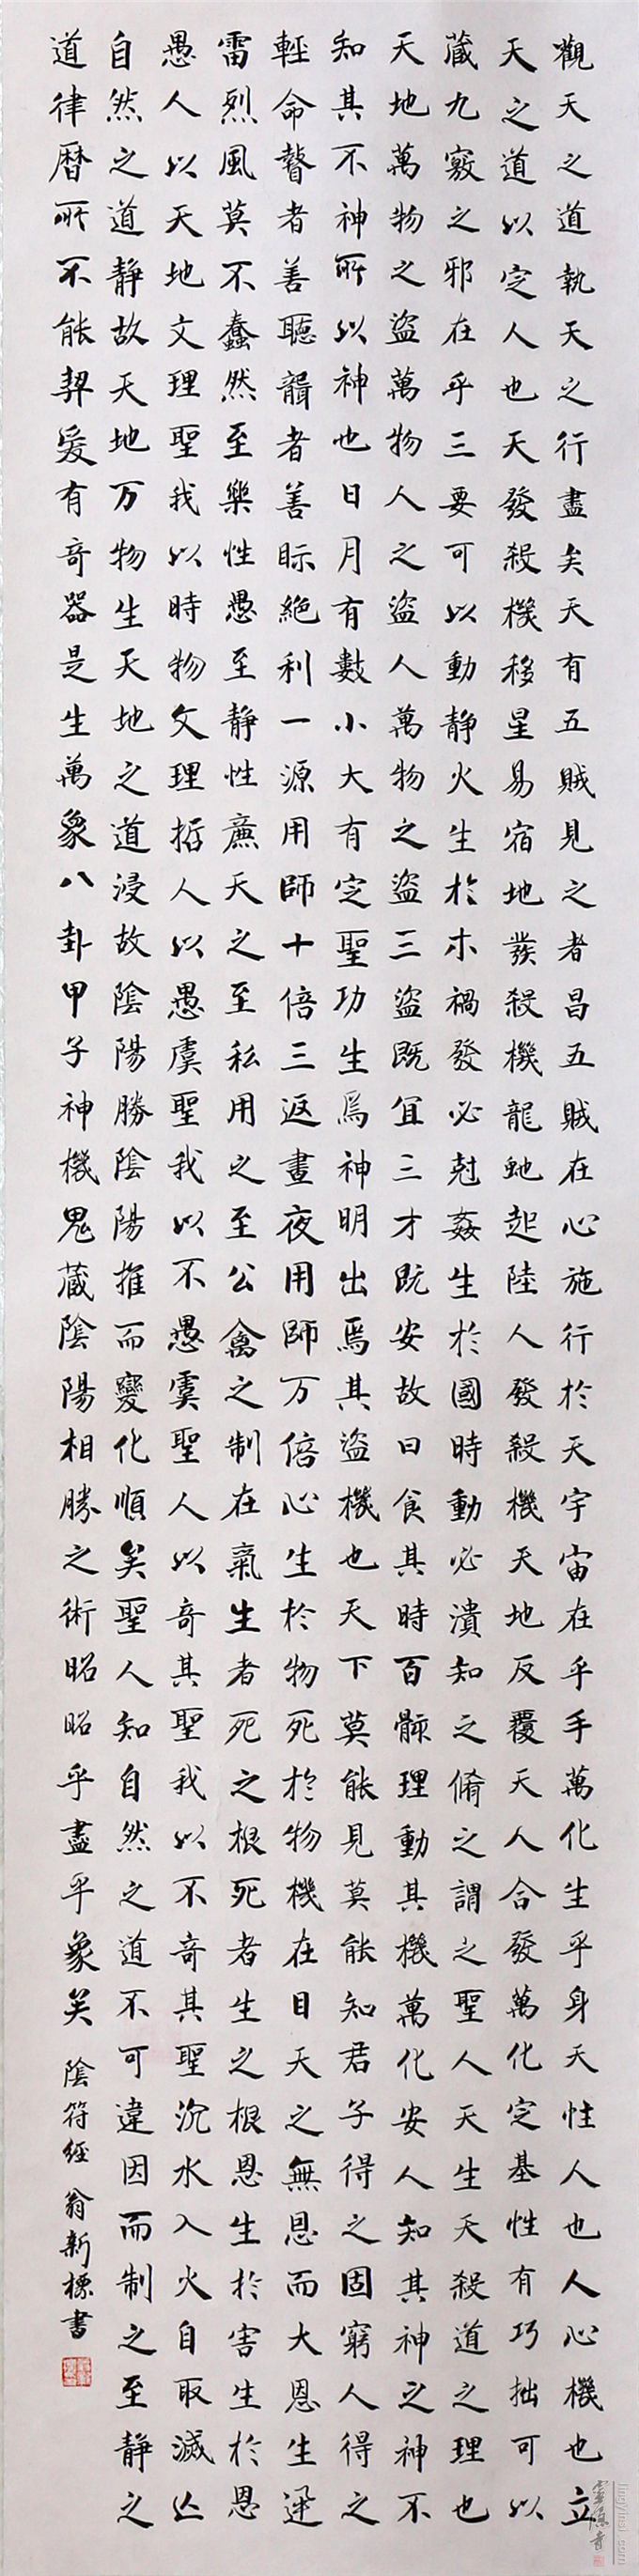 觀天之道執天之行盡矣天有五賊見之者昌五賊在心施行於天宇宙在乎手萬化生乎身天性人也人心機也立
天之道以定人也天發殺機移星易宿地發殺機龍虵起陸人發殺機天地反覆天人合發萬化定基性有巧拙可以
藏九竅之邪在乎三要可以動静火生於木禍發必尅姦生於國時動必潰知之脩之謂之聖人天生天殺道之理也
天地萬物之盜萬物人之盜人萬物之盜三盜既宜三才既安故曰食其時百骸理動其機萬化安人知其神之神不
知其不神所以神也日月有數小大有定聖功生焉神明出焉其盜機也天下莫能見莫能知君子得之固窮人得之
輕命瞽者善聽聾者善眎絕利一源用師十倍三返晝夜用師万倍心生於物死於物機在目天之無恩而大恩生迅
雷烈風莫不蠢然至樂性愚至静性廉天之至私用之至公禽之制在氣生者死之根死者生之根恩生於害生於恩
愚人以天地文理聖我以時物文理哲人以愚虞聖我以不愚虞聖人以奇其聖我以不奇其聖沉水入火自取滅亡
自然之道静故天地万物生天地之道浸故陰陽勝陰陽推而變化順矣聖人知自然之道不可違因而制之至静之
道律曆所不能契爰有奇器是生萬象八卦甲子神機鬼藏陰陽相勝之術昭昭乎盡乎象矣 陰符經 翁新標書